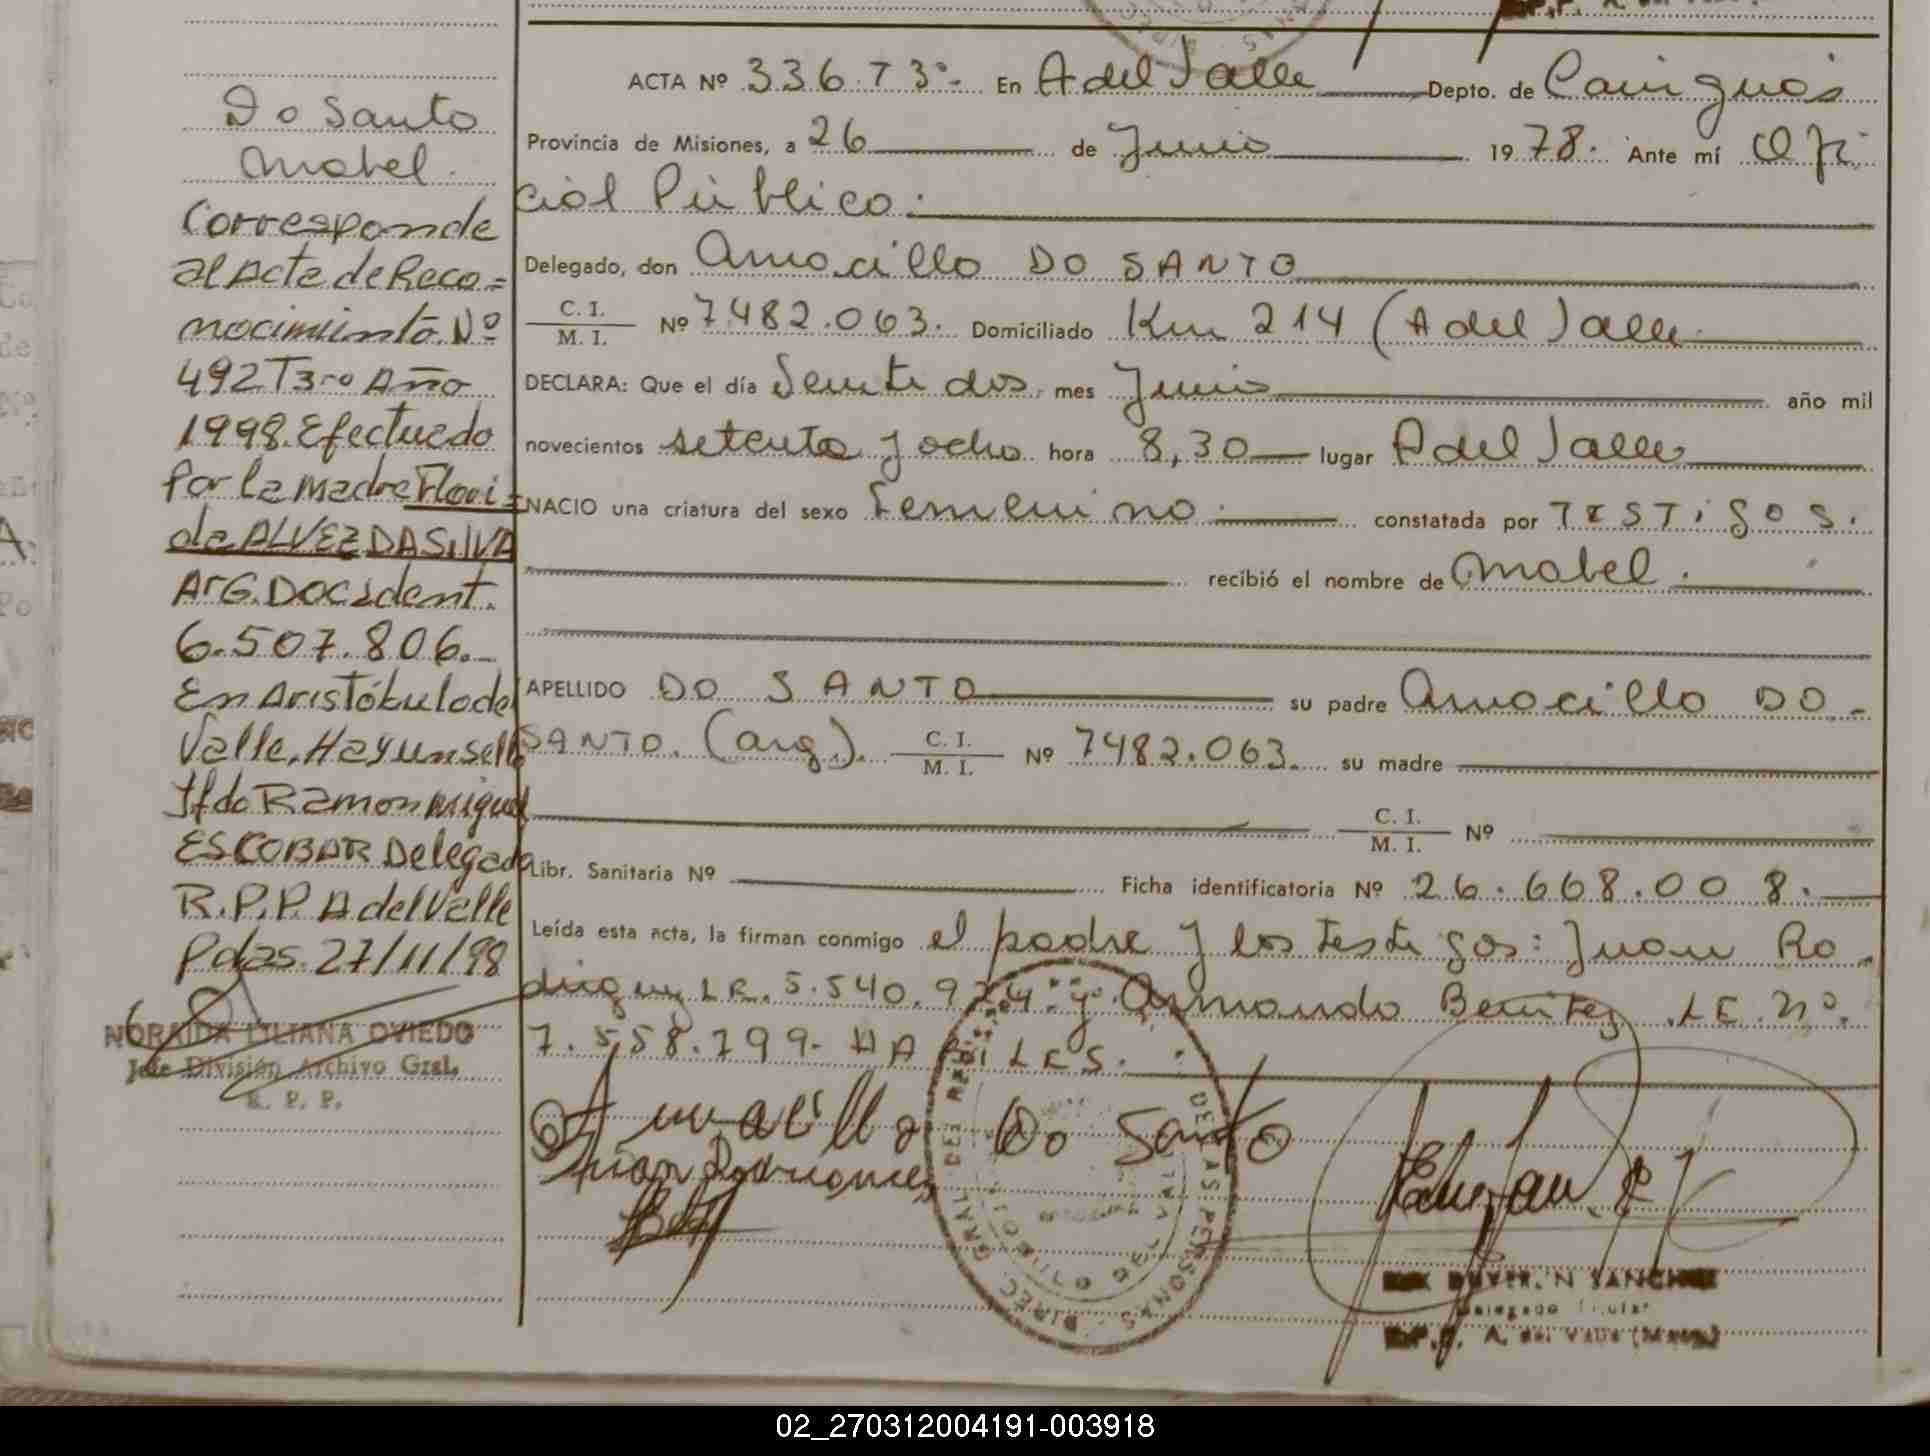 Do Santo
Mabel.
Corresponde
al Acta de Reco=
nocimiento. Nº
492 T3ro Año
1998. Efectuado
Por la madre Flori=
da ALVEZ DA SILVA
ArG. Doc. Ident.
6.507.806.-
En Aristóbulo del
Valle. Hay un sello
Ramon Miguel
ESCOBAR Delegado
R.P.P. A del Valle
Pdas. 27/11/98
NORAIDA LILIANA OVIEDO
Jefe División Archivo Gral.
R. P. P.
ACTA Nº 336 T 3º- En A del Valle Depto. de Cainguás
Provincia de Misiones, a 26 de Junio 1978. Ante mí Ofi
cial Público.
Delegado, don Amacillo DO SANTO
C. I. / M. I. Nº 7482.063. Domiciliado Km 214 (A del Valle
DECLARA: Que el día Veinte dos mes Junio año mil
novecientos setenta y ocho hora 8,30 lugar A del Valle
NACIO una criatura del sexo Femenino. constatada por TESTIGOS.
recibió el nombre de Mabel.
APELLIDO DO SANTO su padre Amacillo DO-
SANTO. (arg). C. I. / M. I. Nº 7482.063. su madre
C. I. / M. I. Nº
Libr. Sanitaria Nº Ficha identificatoria Nº 26.668.008.
Leída esta acta, la firman conmigo el padre y los testigos: Juan Ro
driguez LE. 5.540.924. y Armando Benitez LE. nº.
7.558.799- HABILES.
Amacillo Do Santo
Juan Rodriguez
DIREC. GRAL. DEL REG. DE LAS PERSONAS
SANCHEZ
Delegado Titular
R.P.P. A. del Valle (Mnes)
02_270312004191-003918